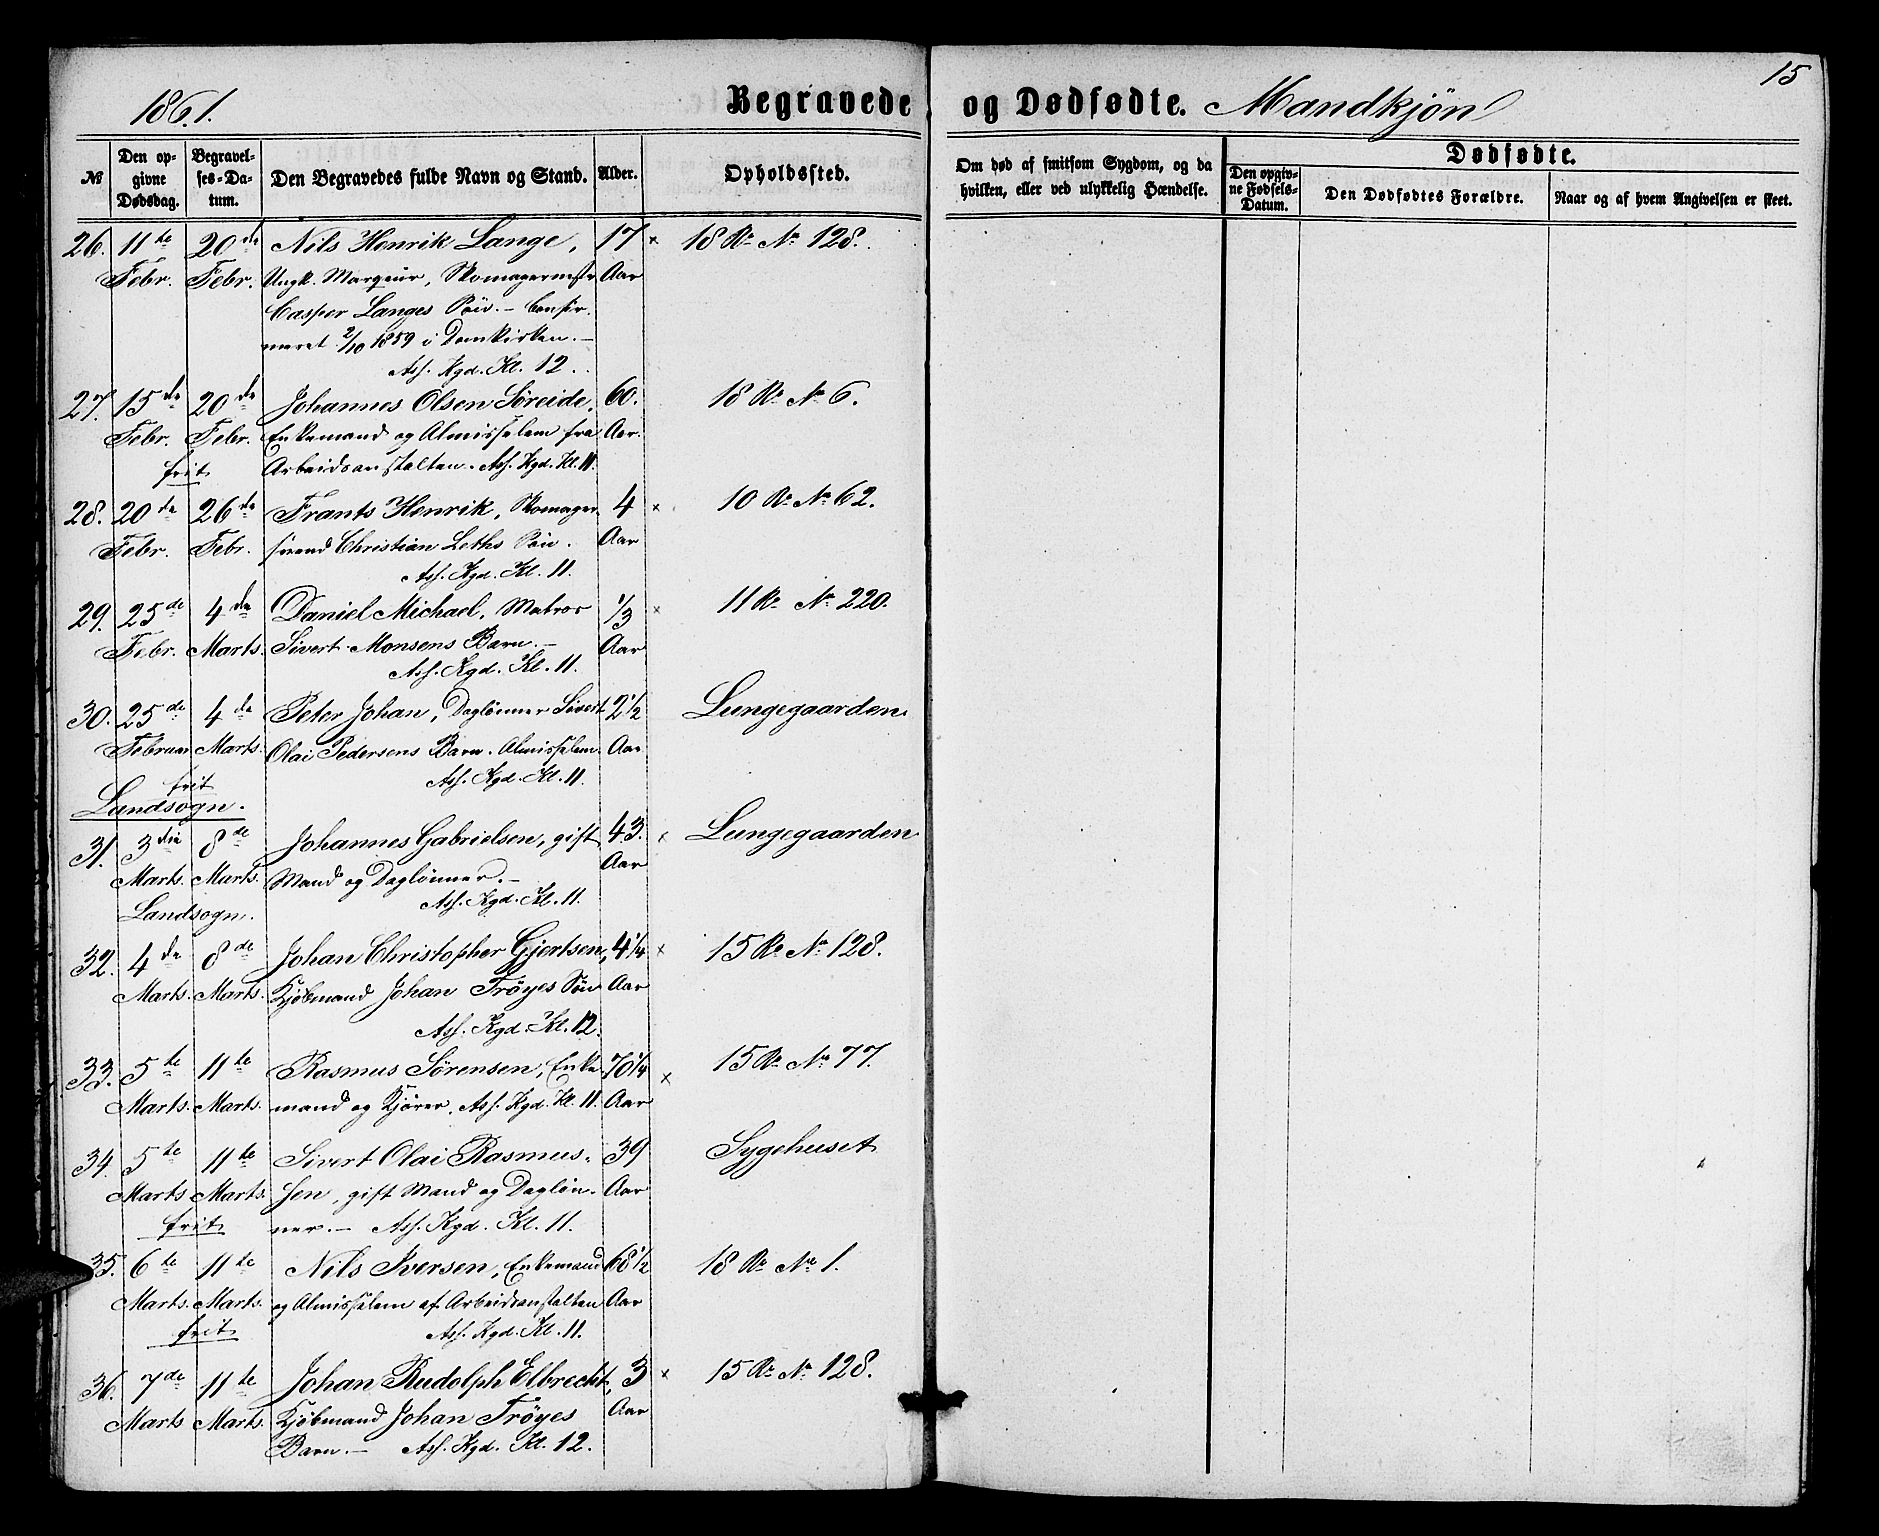 15
1861.
Begravede og Dødfødte. Mandkjøn
№
Den opgivne Dødsdag.
Begravelses-Datum.
Den Begravedes fulde Navn og Stand.
Alder.
Opholdssted.
Om død af smitsom Sygdom, og da hvilken, eller ved ulykkelig Hændelse.
Dødfødte.
Den opgivne Fødsels-Datum.
Den Dødfødtes Forældre.
Naar og af hvem Angivelsen er skeet.
26. 11te 20de Nils Henrik Lange, 17 × 18 Re No 128.
Febr. Febr. Ungk. Marqeur, Skomagermestr Aar
Casper Langes Søn. – Confir-
meret 2/10 1859 i Domkirken. –
Ass. Kgd. Kl. 12.
27. 15de 20de Johannes Olsen Søreide, 60. 18 Re No 6.
Febr. Febr. Enkemand og Almisselem fra Aar.
frit Arbeidsanstalten. Ass. Kgd. Kl. 11.
28. 20de 26de Frants Henrik, Skomager- 4 × 10 Re No 62.
Febr. Febr. svend Christian Leths Søn. Aar
Ass. Kgd. Kl. 11.
29. 25de 4de Daniel Michael, Matros 1/3 × 11 Re No 220.
Febr. Marts. Sivert Monsens Barn. – Aar
Ass. Kgd. Kl. 11.
30. 25de 4de Peter Johan, Daglønner Sivert 2 1/2 Lungegaarden.
Februar Marts. Olai Pedersens Barn. Almisselem. Aar
frit Ass. Kgd. Kl. 11.
Landsogn.
31. 3die 8de Johannes Gabrielsen, gift 43. × Lungegaarden
Marts. Marts. Mand og Daglønner. – Aar
Landsogn. Ass. Kgd. Kl. 11.
32. 4de 8de Johan Christopher Gjertsen, 4 1/4 × 15 Re No 128.
Marts. Marts. Kjøbmand Johan Trøyes Søn Aar
Ass. Kgd. Kl. 12.
33. 5te 11te Rasmus Sørensen, Enke- 70 1/4 × 15 Re No 77.
Marts. Marts. mand og Kjører, Ass. Kgd. Kl. 11. Aar
34. 5te 11te Sivert Olai Rasmus- 39 Sygehuset
Marts Marts. sen, gift Mand og Dagløn- Aar
frit ner. – Ass. Kgd. Kl. 11.
35. 6te 11te Nils Iversen, Enkemand 68 1/2 18 Re No 1.
Marts. Marts. og Almisselem af Arbeidsanstalten Aar
frit Ass. Kgd. Kl. 11.
36. 7de 11te Johan Rudolph Elbrecht, 3 × 15 Re No 128.
Marts Marts. Kjøbmand Johan Trøyes Aar
Barn. – Ass. Kgd. Kl. 12.